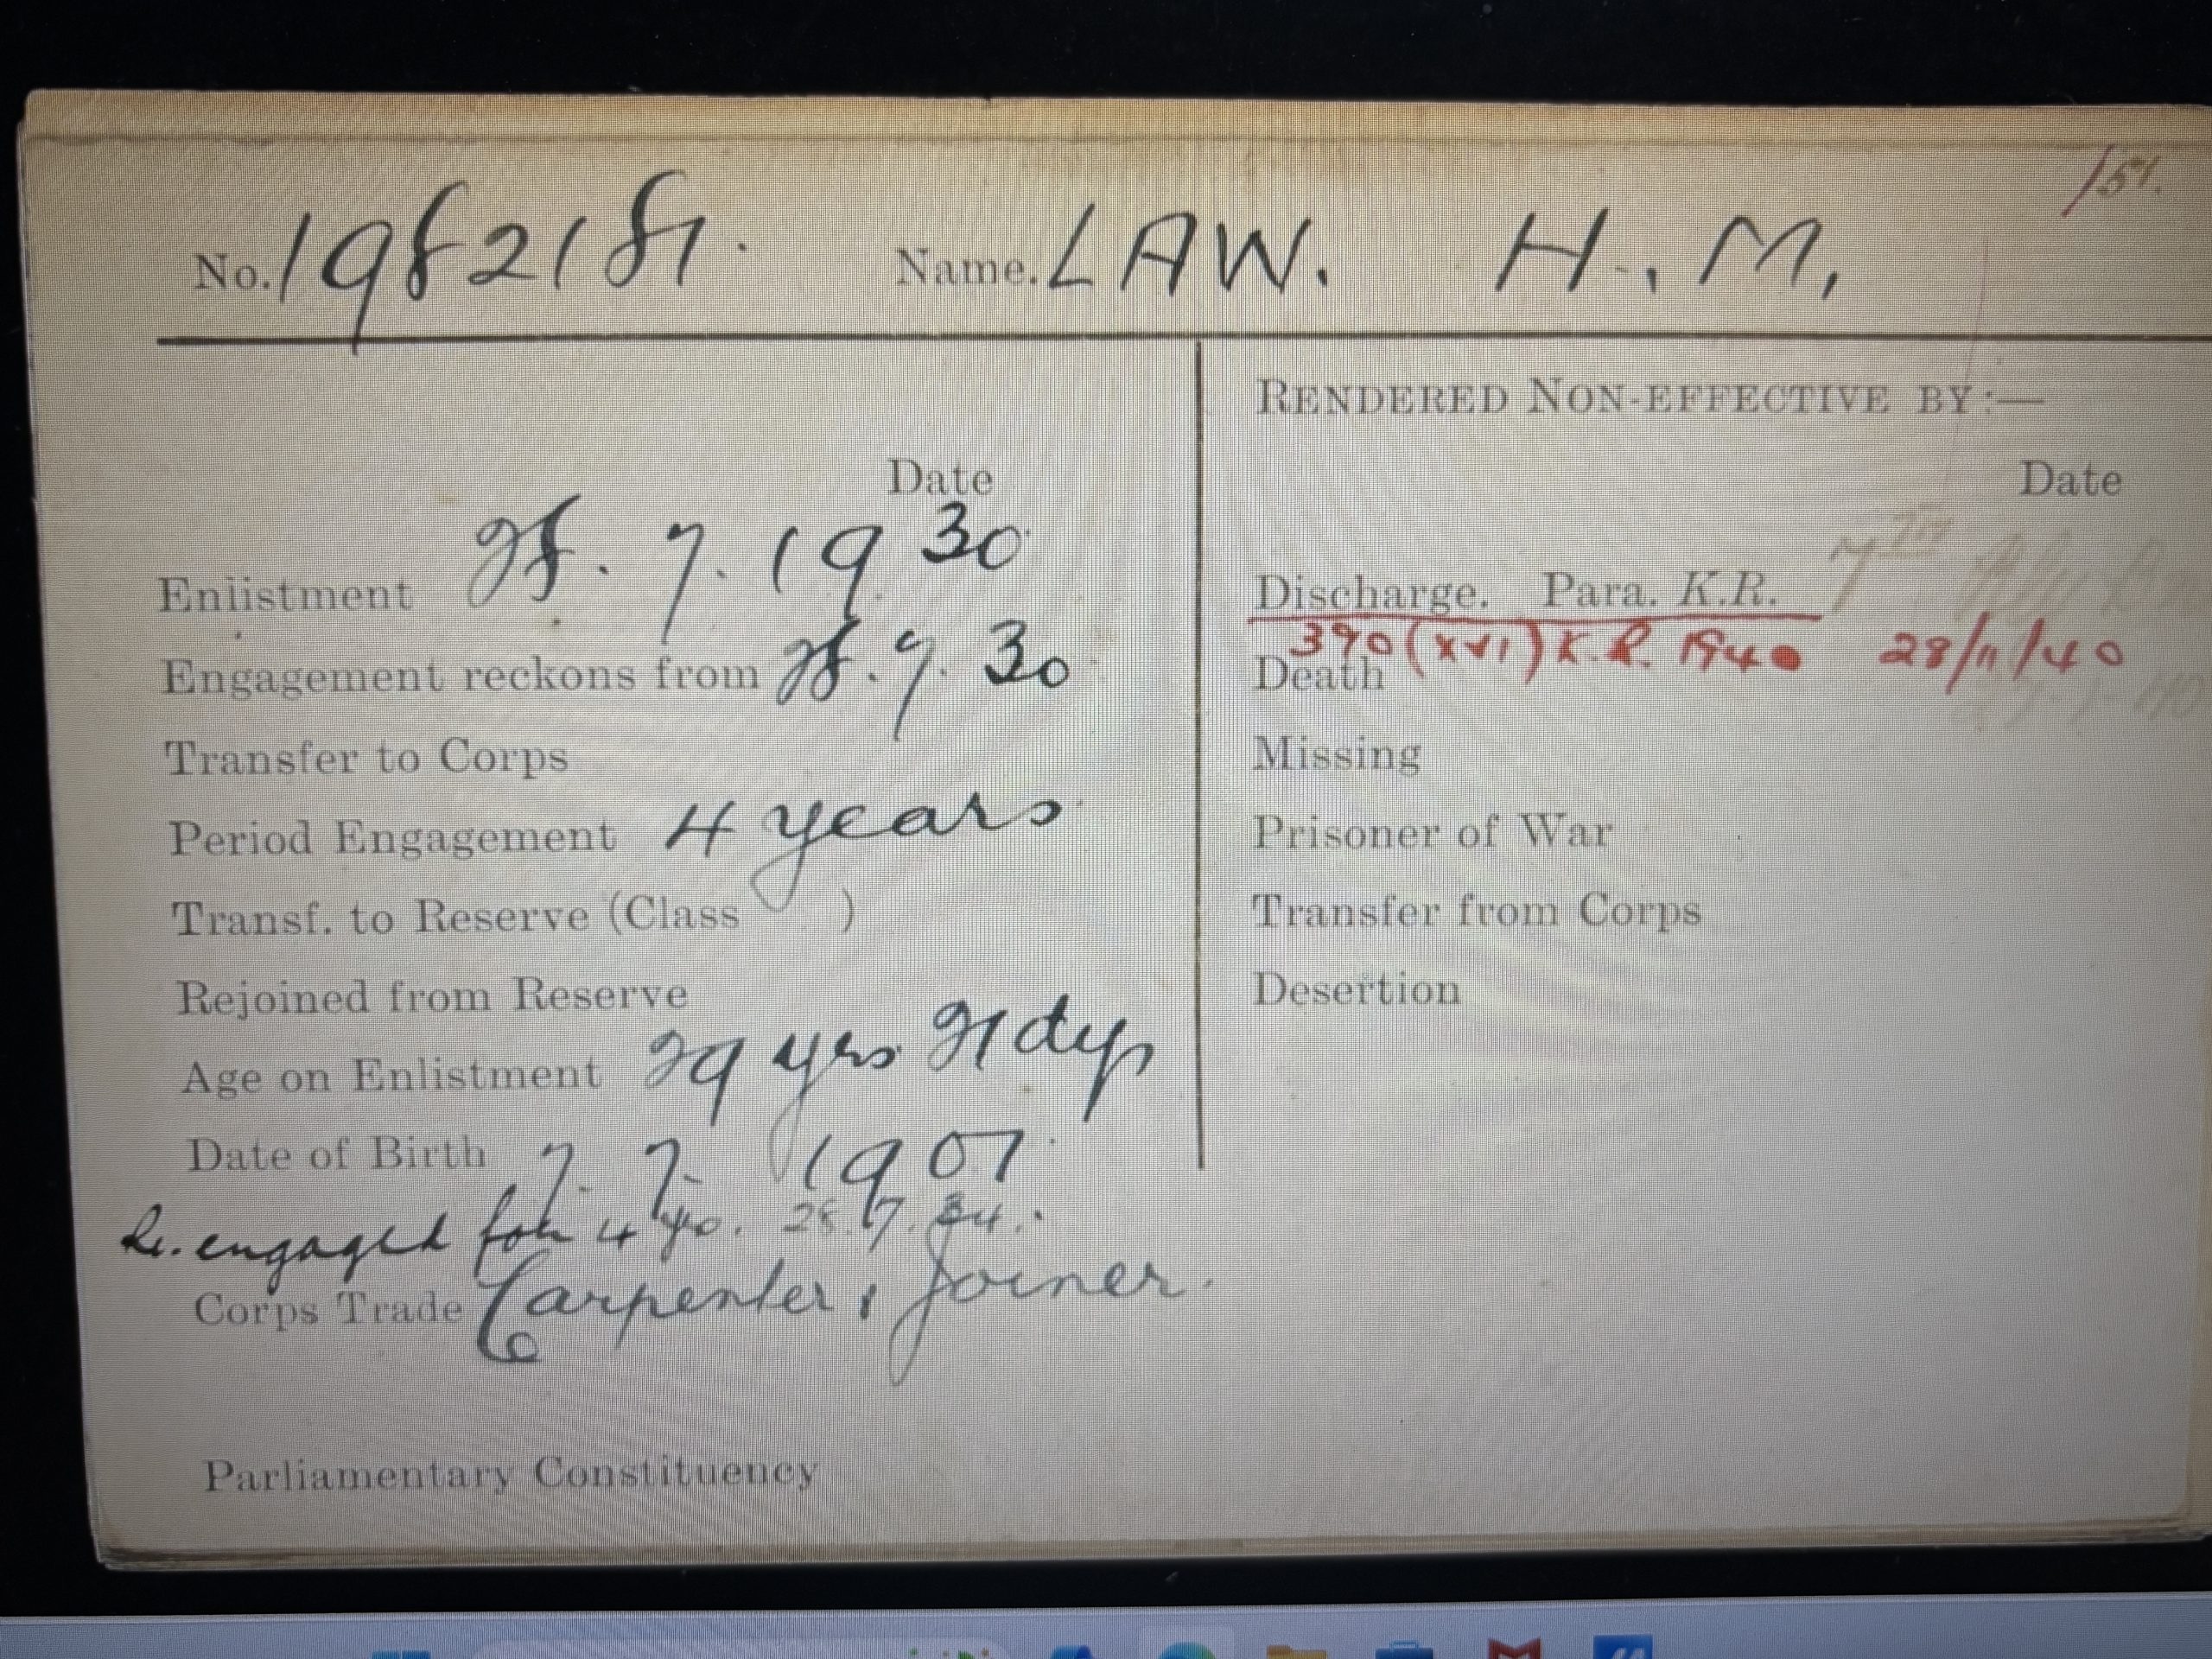 No. 1982181. Name. LAW. H. M.
RENDERED NON-EFFECTIVE BY:—
Date
Date
Enlistment 28. 7. 1930
Discharge. Para. K.R.
390 (XVI) K.R. 1940 28/11/40
Engagement reckons from 28. 7. 30
Death
Transfer to Corps
Missing
Period Engagement 4 years
Prisoner of War
Transf. to Reserve (Class )
Transfer from Corps
Rejoined from Reserve
Desertion
Age on Enlistment 29 yrs 21 dys
Date of Birth 7. 7. 1907
Re.engaged for 4 yrs. 28.7.34.
Corps Trade Carpenter & Joiner.
Parliamentary Constituency